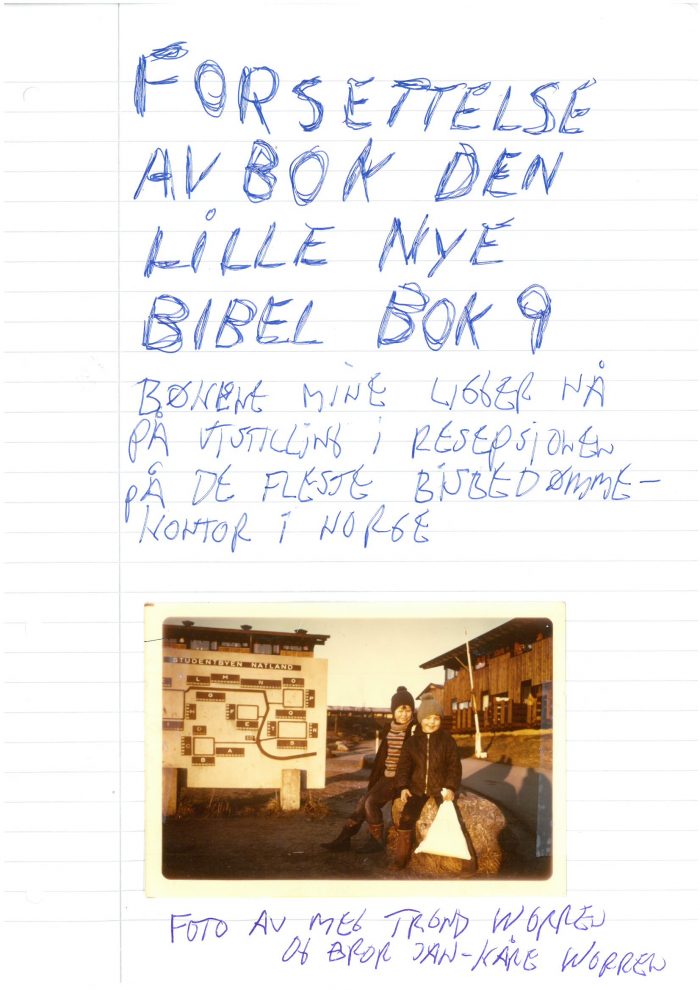 FORSETTELSE
AV BOK DEN
LILLE NYE
BIBEL BOK 9
BØKENE MINE LIGGER NÅ
PÅ UTSTILLING I RESEPSJONEN
PÅ DE FLESTE BISBEDØMME-
KONTOR I NORGE
STUDENTBYEN NATLAND
L M N O
FOTO AV MEG TROND WORREN
OG BROR JAN-KÅRE WORREN